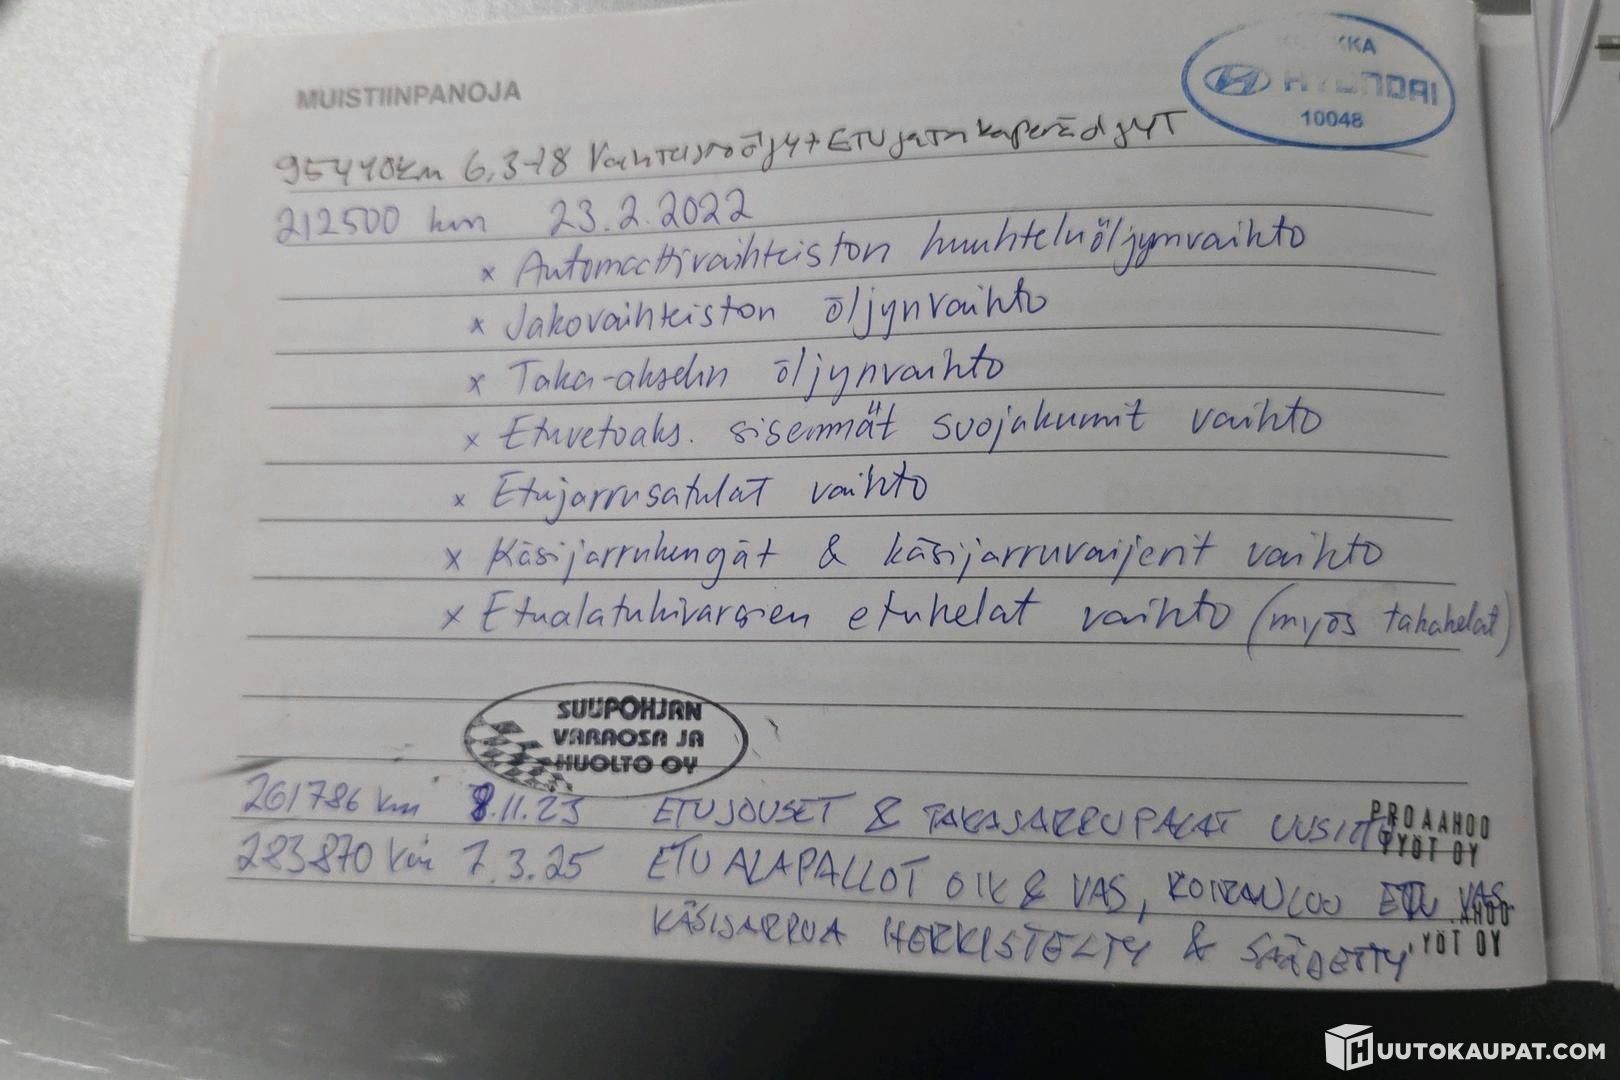 MUISTIINPANOJA
KKA
HYUNDAI
10048
95440km 6.3-18 Vaihteistoöljyt ETU ja takaperä öljyT
212500 km 23.2.2022
x Automaattivaihteiston huuhteluöljynvaihto
x Jakovaihteiston öljynvaihto
x Taka-akselin öljynvaihto
x Etuvetoaks. sisemmät suojakumit vaihto
x Etujarrusatulat vaihto
x Käsijarrukengät & käsijarruvaijerit vaihto
x Etualatukivarsien etuhelat vaihto (myös takahelat)
SUUPOHJAN
VARAOSA JA
HUOLTO OY
261786 km 8.11.23 ETUJOUSET & TAKAJARRUPALAT UUSITTU
PROAAHOO
TYÖT OY
283870 km 7.3.25 ETU ALAPALLOT OIK & VAS, KOIRANLUU ETU VAS.
KÄSIJARRUA HERKISTELTY & SÄÄDETTY
AHOO
YÖT OY
HUUTOKAUPAT.COM